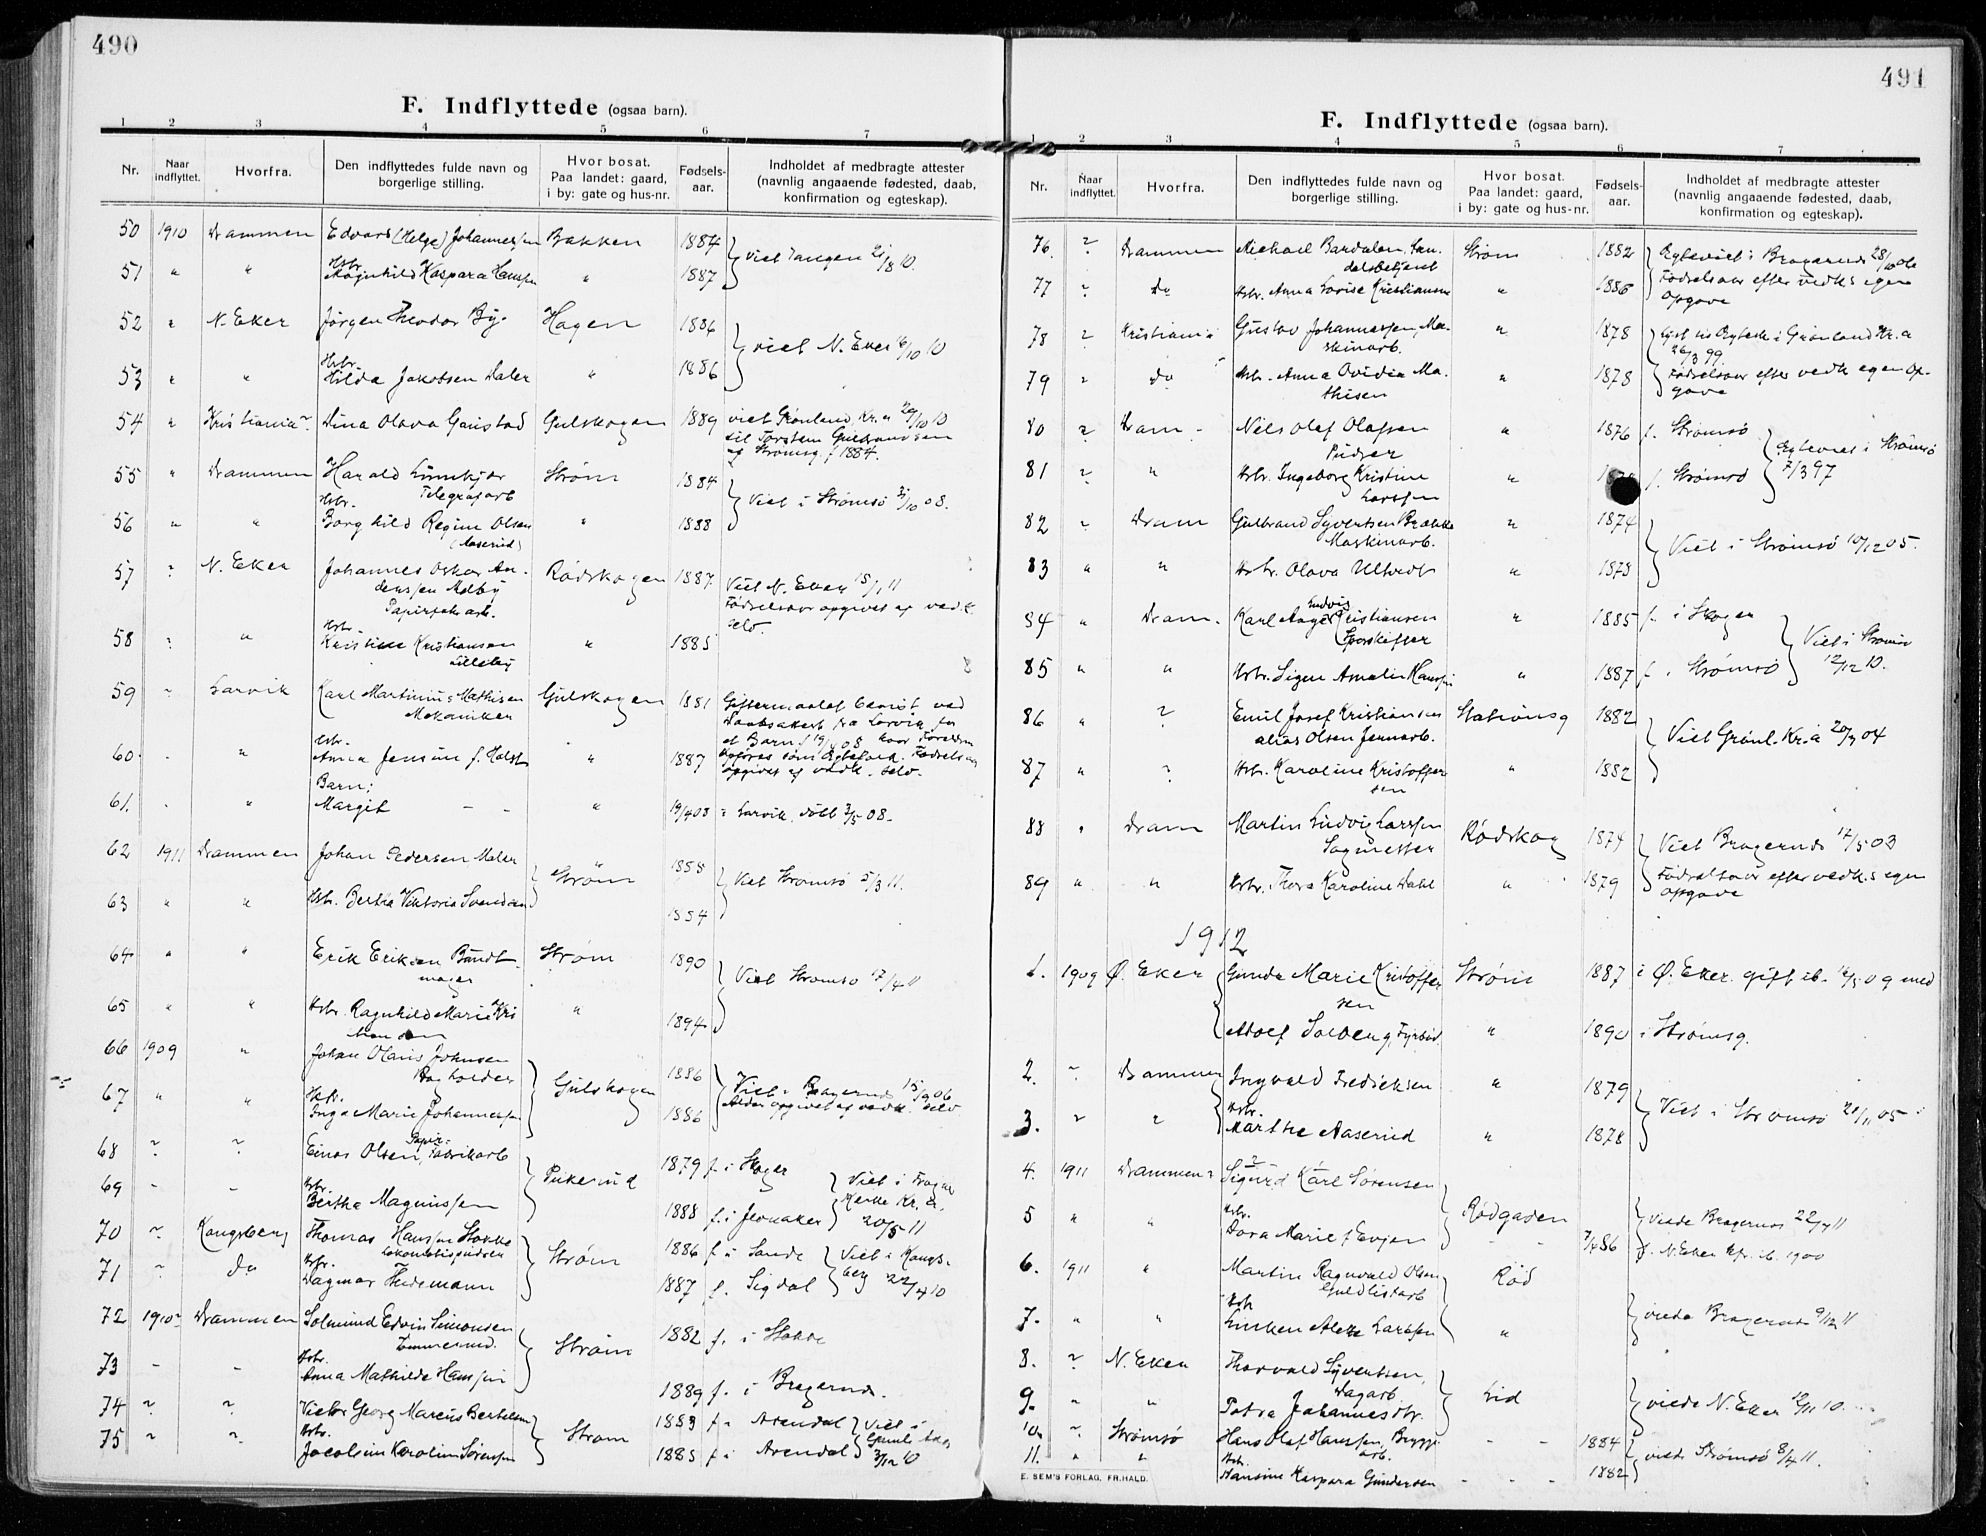 490
F. Indflyttede (ogsaa barn).
1 2 3 4 5 6 7
Nr. Naar indflyttet. Hvorfra. Den indflyttedes fulde navn og borgerlige stilling. Hvor bosat. Paa landet: gaard, i by: gate og hus-nr. Fødsels-aar. Indholdet af medbragte attester (navnlig angaaende fødested, daab, konfirmation og egteskap).
50 1910 Drammen Edvard (Helge) Johannessen Bakken 1884 viet Tangen 21/8 10.
51 " " Hstr. Ragnhild Kaspara Hanssen " 1887
52 " N. Eker Jørgen Theodor By. Hagen 1886 viet N. Eker 16/10 10
53 " " Hstr. Hilda Jakobsen Daler " 1886
54 " Kristiania Dina Olava Gaustad Gulskogen 1889 viet Grønland Kr.a 29/10 10
til Torstein Gulbrandsen
af Strømsg. f 1884.
55 " Drammen Harald Strøm 1884 Viet i Strømsø 31/10 08.
Telegrafarb
56 " " Hstr. Borghild Regine Olsen " 1888
(Aaserud)
57 " N. Eker Johannes Oskar An- Rødskogen 1887 Viet N. Eker 15/1 11
derssen Melby Fødselsaar opgivet af vedk.
Papirfabarb. selv.
58 " " Hstr. Kristine Kristiansen " 1885
Lilleby
59 " Larvik Karl Martinius Mathisen Gulskogen 1881 Giftermaalet bevist ved
Mekaniker Daabsattest fra Larvik for
et Barn f 19/4 08 hvor Forældre
60. " " Hstr. Anna Jensine f. Holst " 1887 opføres som Egtefolk. Fødselsaar
opgivet af vedk. selv.
Barn:
61. " " Margit - - " 19/4 08 i Larvik, døbt 3/5 08.
62 1911 Drammen Johan Pedersen Maler Strøm 1858 Viet Strømsø 5/3 11.
63 " " Hstr. Bertha Viktoria Svendsen 1854
64 " " Erik Eriksen Bundt- Strøm 1890 Viet Strømsø 17/4 11
mager
65 " " Hstr. Ragnhild Marie Kris " 1894
tiansen
66 1909 " Johan Olaus Johnsen Gulskogen 1886 Viet i Bragernes 15/9 06
Bogholder Alder opgivet af vedk. selv
67 " " Hstr. Inga Marie Johannessen 1886
68 " " Einar Olsen, Papir- Fabrikarb Pukerud 1879 f. i Skoger Viet i Frogner
Kirke Kr.a,
69 - - Hstr. Bertha Magnussen 1888 f. i Jevnaker 20/5 11
70 " Kongsberg Thomas Hanssen Stokke Strøm 1886 f. i Sande Viet i Kongs-
Lokomotivpudser berg 22/4 10
71 " Do Hstr. Dagmar Thidemann 1887 f. Sigdal
72 1910 Drammen Solmund Edvin Simonsen Strøm 1882 f. i Stokke
Tømmermd.
73 - - Hstr. Anna Mathilde Hanssen 1889 f. i Bragernes.
74 " " Victor Georg Marcus Bertelsen Strøm 1883 f. i Arendal Viet i
75 " " Hstr. Jacobine Karoline Sørenssen 1885 f. i Arendal 3/12 10
491
F. Indflyttede (ogsaa barn).
1 2 3 4 5 6 7
Nr. Naar indflyttet. Hvorfra. Den indflyttedes fulde navn og borgerlige stilling. Hvor bosat. Paa landet: gaard, i by: gate og hus-nr. Fødsels-aar. Indholdet af medbragte attester (navnlig angaaende fødested, daab, konfirmation og egteskap).
76. ? Drammen Michael Bardalen, Han- Strøm 1882 Egteviet i Bragernes 28/10 06
delsbetjent
77 ? Do Hstr. Anna Lovise Kristiansen " 1886 Fødselsaar efter vedk.s egen
opgave
78 ? Kristiania Gustav Johannessen, Ma- " 1878 Lyst til Egtesk. i Grønland Kr.a
skinarb. 26/3 99.
79 ? Do Hstr. Anna Ovidia Ma- " 1878 Fødselsaar efter vedk egen Op-
thisen gave
80 ? Dram. Nils Olaf Olafsen " 1876 f. Strømsø Egteviet i Strømsø
Pudser 7/3 97
81 ? " Hstr. Ingeborg Kristine " f. Strømsø
Larssen
82 ? Dram Gulbrand Syvertsen Brække " 1874 Viet i Strømsø 10/12 05.
Maskinarb.
83 " " Hstr. Olava Ulbredt " 1873
84 " Dram. Karl Aage Ludvig Kristiansen " 1885 f. i Skoger Viet i Strømsø
Sporskifter 12/12 10.
85 " " Hstr. Signe Amalie Hanssen " 1887 f. i Strømsø
86 " ? Emil Josef Kristiansen Stationsg 1882 Viet Grønl. Kr.a 20/3 04
alias Olsen Jernarb.
87 " ? Hstr. Karoline Kristoffer " 1882
sen
88 " Dram Martin Ludvig Larssen Rødskog 1874 Viet Bragernes 17/5 03
Sagmester
89 " " Hstr. Thora Karoline Dahl " 1879 Fødselsaar efter vedk.s egen
opgave
1912
1. 1909 Ø. Eker Gunda Marie Kristoffer Strøm 1887 i Ø. Eker. gift ib. 12/5 09 med
sen
Adolf Solberg, Fyrbød. " 1890 i Strømsg.
2. " Drammen Ingvald Fredriksen " 1879 Viet i Strømsø 20/11 05
3. " " Hstr. Marthe Aaserud " 1878
4. 1911 Drammen ? Sigurd Karl Sørensen Rødgaden viede Bragernes 22/7 11
5 " " Hstr. Dora Marie f Evjen - - 7/4 86 f. N. Eker kfr. ib. 1900
6. 1911 " Martin Ragnvald Olsen Rød viede Bragernes 9/12 11
Guldlistarb
7. " " Hstr. Linken Alette Larssen "
8. " N. Eker Thorvald Syvertsen, Lid viede N. Eker 12/11 10.
Dagarb.
9. " " Petra Johannesdtr.
10. " Strømsø Hans Olaf Hanssen, Brygge - - 1884 viede Strømsø 8/4 11.
arb.
11. " " Hstr. Hansine Kaspara Gundersen - - - 1882
E. SEM'S FORLAG, FR.HALD.